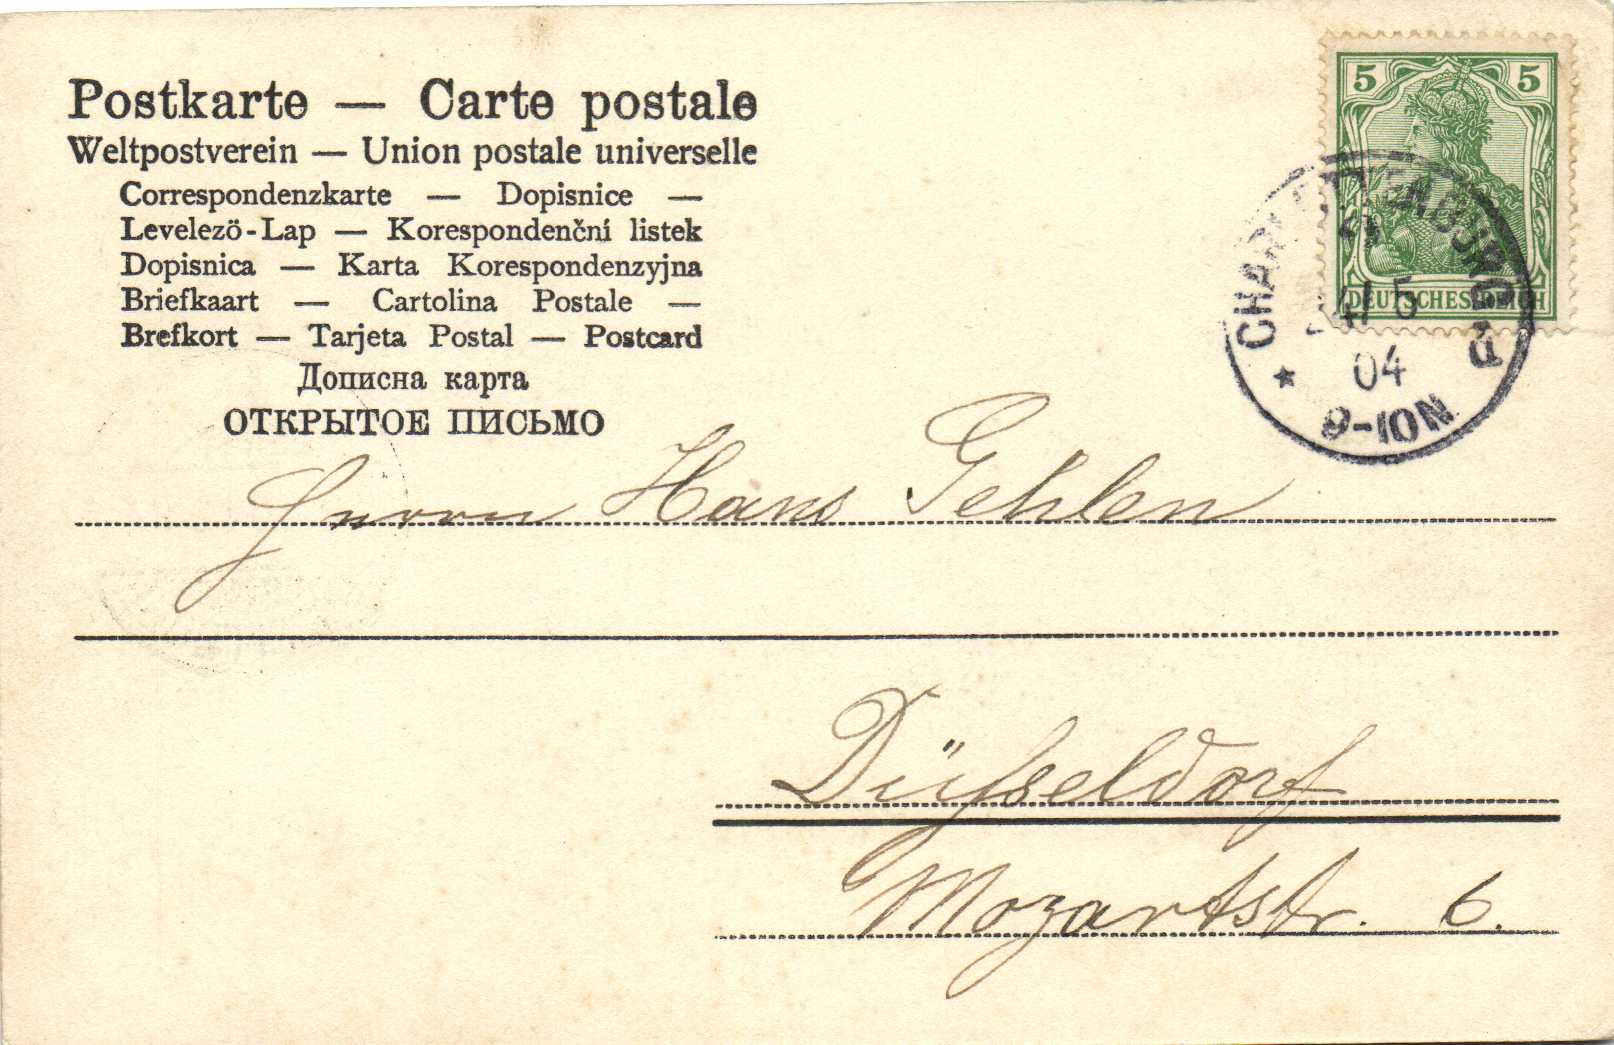 Postkarte — Carte postale
Weltpostverein — Union postale universelle
Correspondenzkarte — Dopisnice —
Levelezö-Lap — Korespondenční listek
Dopisnica — Karta Korespondenzyjna
Briefkaart — Cartolina Postale —
Brefkort — Tarjeta Postal — Postcard
Дописна карта
ОТКРЫТОЕ ПИСЬМО
5 5
DEUTSCHES REICH
* CHARLOTTENBURG
5
04
9-10N
Herrn Hans Gehlen
Düsseldorf
Mozartstr. 6.